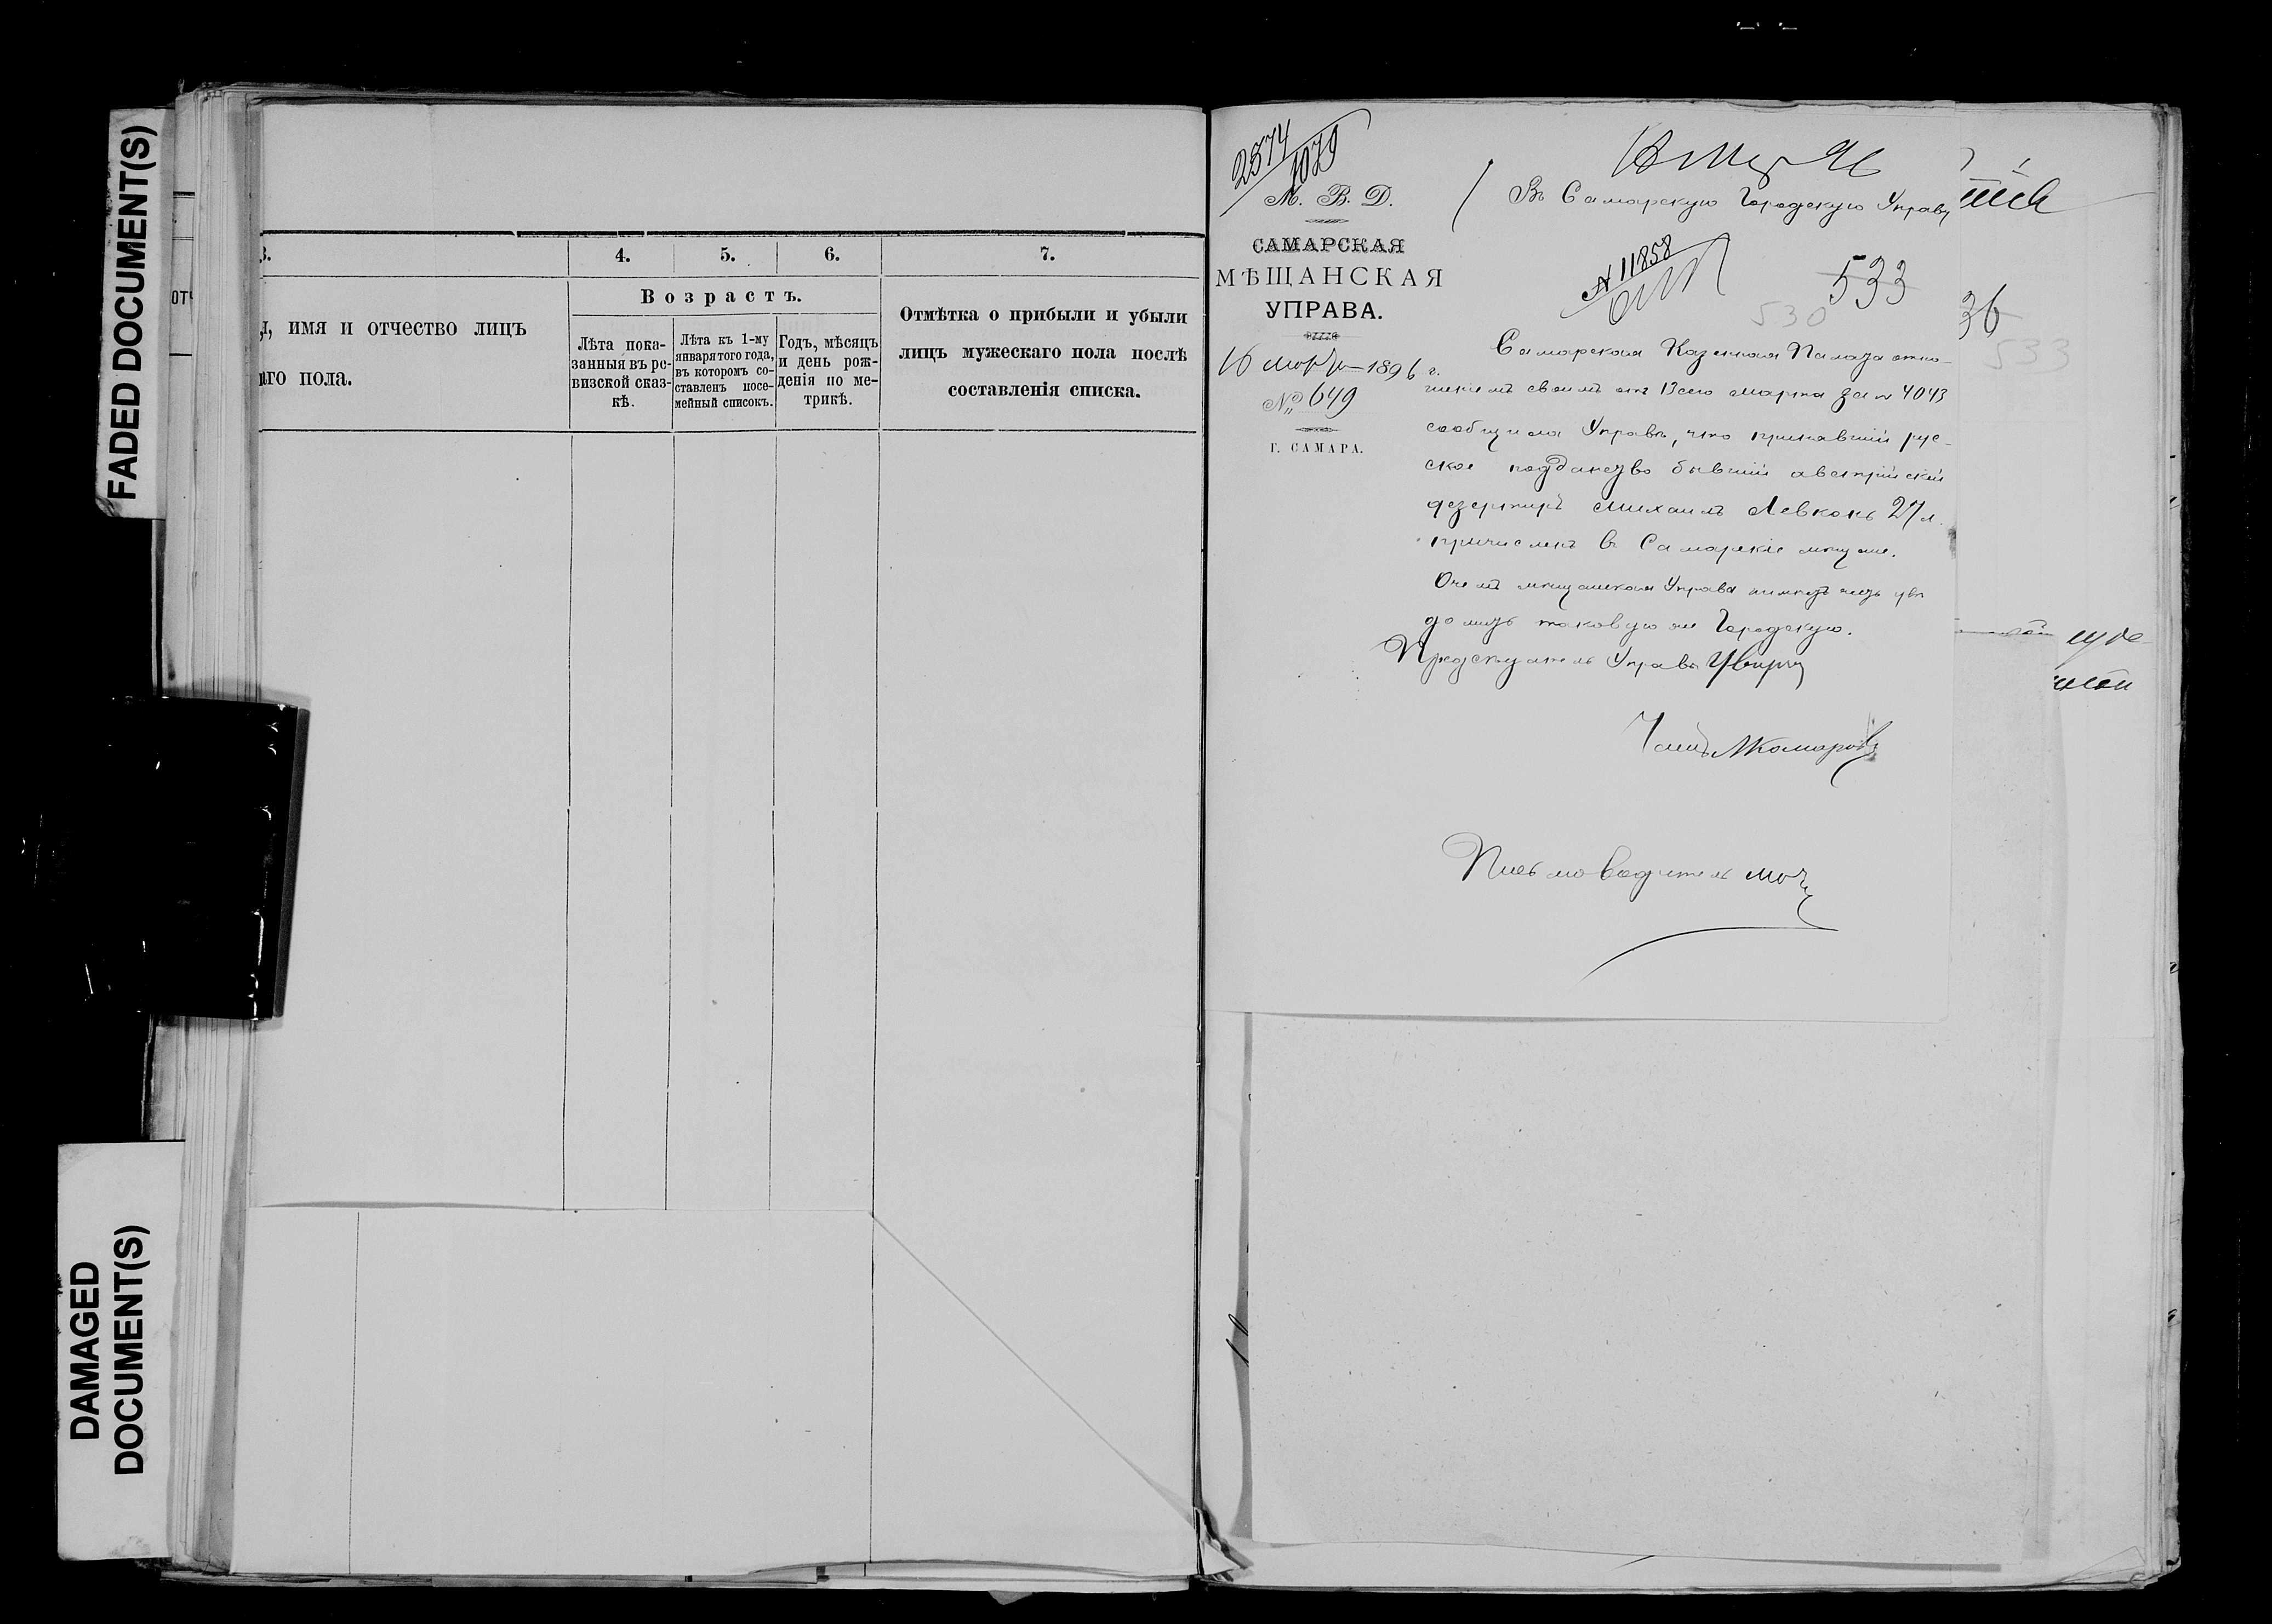 FADED DOCUMENT(S)
DAMAGED
DOCUMENT(S)
3.
4.
5.
6.
7.
имя и отчество лицъ
пола.
Возрастъ.
Лѣта пока-
занныя въ ре-
визской сказ-
кѣ.
Лѣта къ 1-му
января того года,
въ котором со-
ставленъ посе-
мейный списокъ.
Годъ, мѣсяцъ
и день рож-
денія по ме-
трикѣ.
Отмѣтка о прибыли и убыли
лицъ мужескаго пола послѣ
составленія списка.
2574
1079
М. В. Д.
САМАРСКАЯ
МѢЩАНСКАЯ
УПРАВА.
16 марта 1896 г.
№ 649
Г. САМАРА.
Въ Самарскую Городскую Управу
№ 11858
533
530
36
533
Самарская Казенная Палата отно-
шеніемъ своимъ отъ 13сего марта за № 4043
сообщила Управѣ, что принявшій рус-
ское подданство бывшій австрійскій
дезертиръ Михаилъ Левконь 27 л.
причисленъ въ Самарскіе мѣщане.
О чемъ мѣщанская Управа имѣетъ честь увѣ
домить таковую же Городскую.
Предсѣдатель Управы
Членъ Комаровъ
Письмоводитель